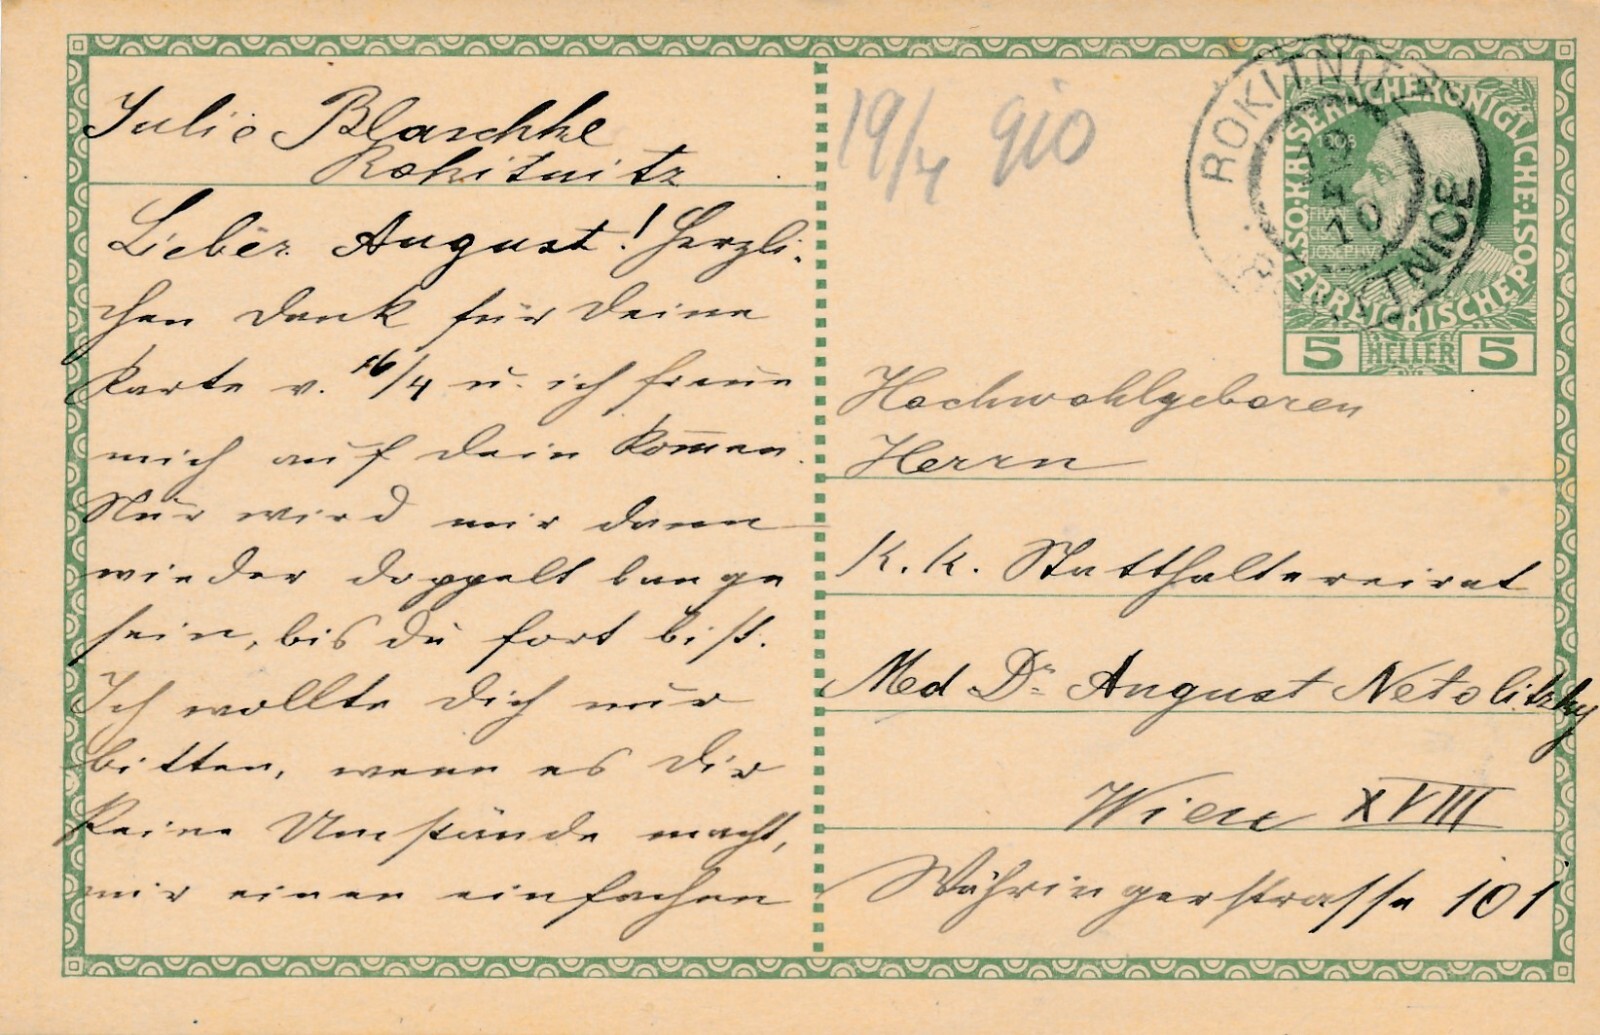 Julie Blaschke
Rokitnitz
Lieber August! Herzli-
chen Dank für Deine
Karte v. 16/4 u. ich freue
mich auf dein Kom̅en.
Nur wird mir dann
wieder doppelt bange
sein, bis du fort bist.
Ich wollte Dich nur
bitten, wenn es Dir
keine Umstände macht,
mir einen einfachen
19/4 910
ROKITNITZ
19
4
10
ROKITNICE
KAISERLICHEKÖNIGLICHE
ÖSTERREICHISCHEPOST
1908
FRANZ
JOSEPH
5 HELLER 5
Hochwohlgeboren
Herrn
K. K. Statthaltereirat
Med Dr August Netolitzky
Wien XVIII
Währingerstrasse 101